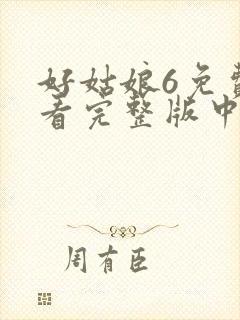 好姑娘6免费
看完整版中
周有臣